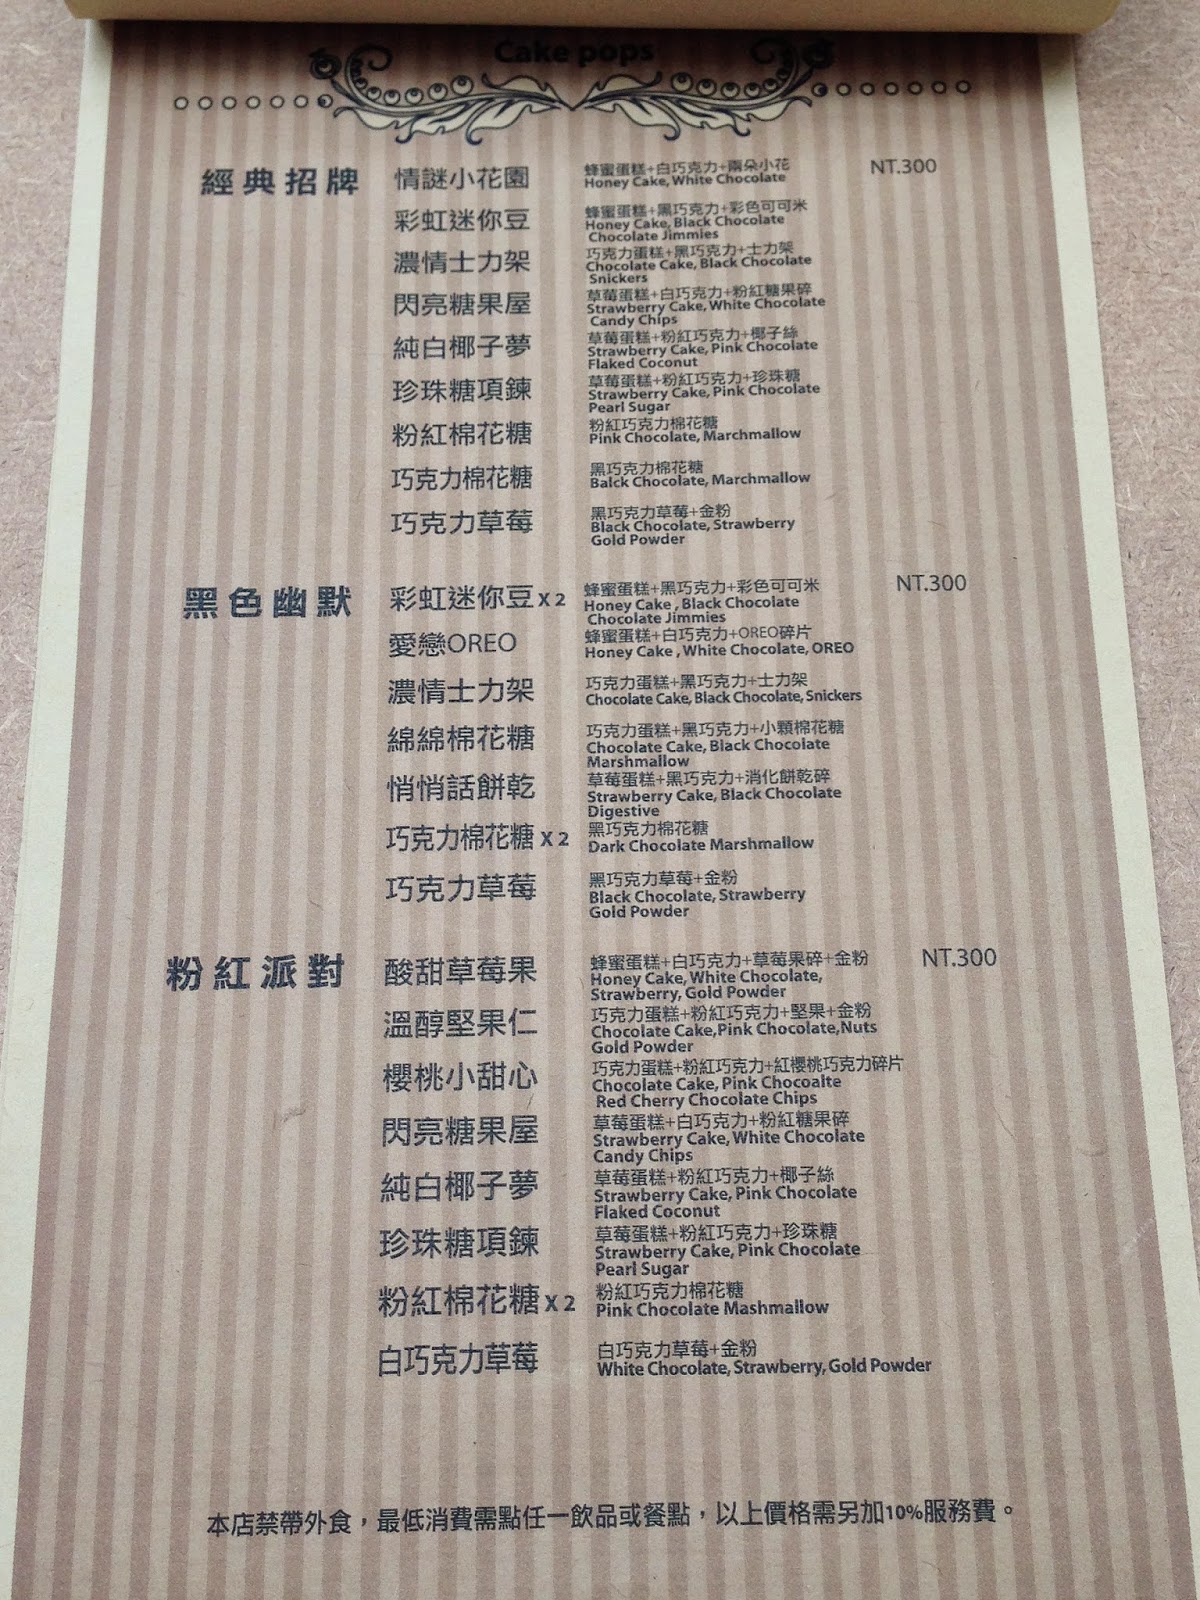 Cake pops
經典招牌 情謎小花園 蜂蜜蛋糕+白巧克力+兩朵小花 NT.300
Honey Cake, White Chocolate
彩虹迷你豆 蜂蜜蛋糕+黑巧克力+彩色可可米
Honey Cake, Black Chocolate
Chocolate Jimmies
濃情士力架 巧克力蛋糕+黑巧克力+士力架
Chocolate Cake, Black Chocolate
Snickers
閃亮糖果屋 草莓蛋糕+白巧克力+粉紅糖果碎
Strawberry Cake, White Chocolate
Candy Chips
純白椰子夢 草莓蛋糕+粉紅巧克力+椰子絲
Strawberry Cake, Pink Chocolate
Flaked Coconut
珍珠糖項鍊 草莓蛋糕+粉紅巧克力+珍珠糖
Strawberry Cake, Pink Chocolate
Pearl Sugar
粉紅棉花糖 粉紅巧克力棉花糖
Pink Chocolate, Marchmallow
巧克力棉花糖 黑巧克力棉花糖
Balck Chocolate, Marchmallow
巧克力草莓 黑巧克力草莓+金粉
Black Chocolate, Strawberry
Gold Powder
黑色幽默 彩虹迷你豆 X 2 蜂蜜蛋糕+黑巧克力+彩色可可米 NT.300
Honey Cake , Black Chocolate
Chocolate Jimmies
愛戀OREO 蜂蜜蛋糕+白巧克力+OREO碎片
Honey Cake , White Chocolate, OREO
濃情士力架 巧克力蛋糕+黑巧克力+士力架
Chocolate Cake, Black Chocolate, Snickers
綿綿棉花糖 巧克力蛋糕+黑巧克力+小顆棉花糖
Chocolate Cake, Black Chocolate
Marshmallow
悄悄話餅乾 草莓蛋糕+黑巧克力+消化餅乾碎
Strawberry Cake, Black Chocolate
Digestive
巧克力棉花糖 X 2 黑巧克力棉花糖
Dark Chocolate Marshmallow
巧克力草莓 黑巧克力草莓+金粉
Black Chocolate, Strawberry
Gold Powder
粉紅派對 酸甜草莓果 蜂蜜蛋糕+白巧克力+草莓果碎+金粉 NT.300
Honey Cake, White Chocolate,
Strawberry, Gold Powder
溫醇堅果仁 巧克力蛋糕+粉紅巧克力+堅果+金粉
Chocolate Cake,Pink Chocolate,Nuts
Gold Powder
櫻桃小甜心 巧克力蛋糕+粉紅巧克力+紅櫻桃巧克力碎片
Chocolate Cake, Pink Chocoalte
Red Cherry Chocolate Chips
閃亮糖果屋 草莓蛋糕+白巧克力+粉紅糖果碎
Strawberry Cake, White Chocolate
Candy Chips
純白椰子夢 草莓蛋糕+粉紅巧克力+椰子絲
Strawberry Cake, Pink Chocolate
Flaked Coconut
珍珠糖項鍊 草莓蛋糕+粉紅巧克力+珍珠糖
Strawberry Cake, Pink Chocolate
Pearl Sugar
粉紅棉花糖 X 2 粉紅巧克力棉花糖
Pink Chocolate Mashmallow
白巧克力草莓 白巧克力草莓+金粉
White Chocolate, Strawberry, Gold Powder
本店禁帶外食，最低消費需點任一飲品或餐點，以上價格需另加10%服務費。